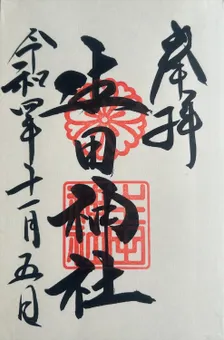 奉拝
土田神社
令和四年十一月五日